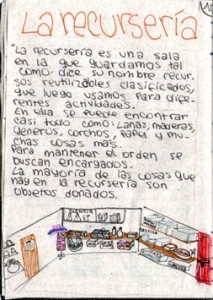 La recursería
"La recurserría es una sala
en la que guardamos tal
como dice su nombre recur-
sos reutilizables clasificados,
que luego usamos para dife-
rentes actividades.
En ella se puede encontrar
casi todo como: Lanas, maderas,
generos, corchos, papel y mu-
chas cosas más.
Para mantener el orden se
buscan encargados.
La mayoría de las cosas que
hay en la recursería son
objetos donados.